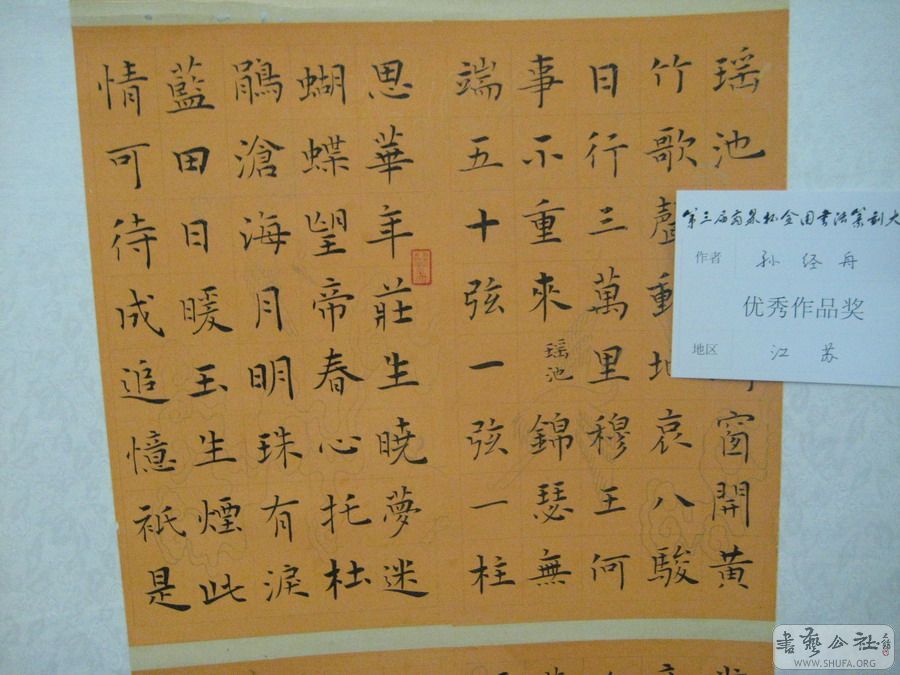 瑶池窗開黃
竹歌聲動地哀八駿
日行三萬里穆王何
事不重來瑶池錦瑟無
端五十弦一弦一柱
思華年莊生曉夢迷
蝴蝶望帝春心托杜
鵑滄海月明珠有淚
藍田日暖玉生煙此
情可待成追憶祇是
第三届杯全国书法篆刻大
作者 孙经舟
优秀作品奖
地区 江苏
書藝公社
WWW.SHUFA.ORG